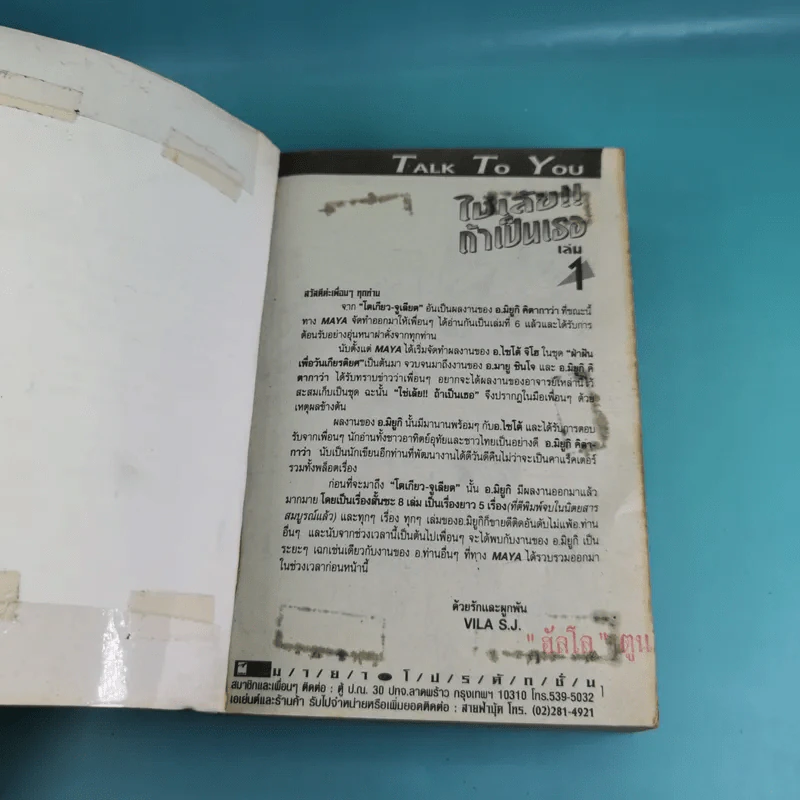 TALK TO YOU
ใช่เลย!!
ถ้าเป็นเธอ
เล่ม
1
สวัสดีค่ะเพื่อนๆ ทุกท่าน
จาก "โตเกียว-จูเลียต" อันเป็นผลงานของ อ.มิยูกิ คิตากาว่า ที่ขณะนี้
ทาง MAYA จัดทำออกมาให้เพื่อนๆ ได้อ่านกันเป็นเล่มที่ 6 แล้วและได้รับการ
ต้อนรับอย่างอุ่นหนาฝาคั่งจากทุกท่าน
นับตั้งแต่ MAYA ได้เริ่มจัดทำผลงานของ อ.ไซโต้ จิโฮ ในชุด "ฝ่าฝัน
เพื่อวันเกียรติยศ"เป็นต้นมา จวบจนมาถึงงานของ อ.มายู ชินโจ และ อ.มิยูกิ คิ
ตากาว่า ได้รับทราบข่าวว่าเพื่อนๆ อยากจะได้ผลงานของอาจารย์เหล่านี้ไว้
สะสมเก็บเป็นชุด ฉะนั้น "ใช่เลย!! ถ้าเป็นเธอ" จึงปรากฏในมือเพื่อนๆ ด้วย
เหตุผลข้างต้น
ผลงานของ อ.มิยูกิ นั้นมีมานานพร้อมๆ กับอ.ไซโต้ และได้รับการตอบ
รับจากเพื่อนๆ นักอ่านทั้งชาวอาทิตย์อุทัยและชาวไทยเป็นอย่างดี อ.มิยูกิ คิตา-
กาว่า นับเป็นนักเขียนอีกท่านที่พัฒนางานได้ดีวันดีคืนไม่ว่าจะเป็นคาแร็คเตอร์
รวมทั้งพล็อตเรื่อง
ก่อนที่จะมาถึง "โตเกียว-จูเลียต" นั้น อ.มิยูกิ มีผลงานออกมาแล้ว
มากมาย โดยเป็นเรื่องสั้นซะ 8 เล่ม เป็นเรื่องยาว 5 เรื่อง(ที่ตีพิมพ์จบในนิตยสาร
สมบูรณ์แล้ว) และทุกๆ เรื่อง ทุกๆ เล่มของอ.มิยูกิก็ขายดีติดอันดับไม่แพ้อ.ท่าน
อื่นๆ และนับจากช่วงเวลานี้เป็นต้นไปเพื่อนๆ จะได้พบกับงานของ อ.มิยูกิ เป็น
ระยะๆ เฉกเช่นเดียวกับงานของ อ.ท่านอื่นๆ ที่ทาง MAYA ได้รวบรวมออกมา
ในช่วงเวลาก่อนหน้านี้
ด้วยรักและผูกพัน
VILA S.J.
"ฮัลโล" ตูน
ม/า/ย/า โ/ป/ร/ดั/ก/ชั่/น
สมาชิกและเพื่อนๆ ติดต่อ : ตู้ ป.ณ. 30 ปทจ.ลาดพร้าว กรุงเทพฯ 10310 โทร.539-5032
เอเย่นต์และร้านค้า รับไปจำหน่ายหรือเพิ่มยอดติดต่อ : สายฟ้าบุ๊ค โทร. (02)281-4921
1